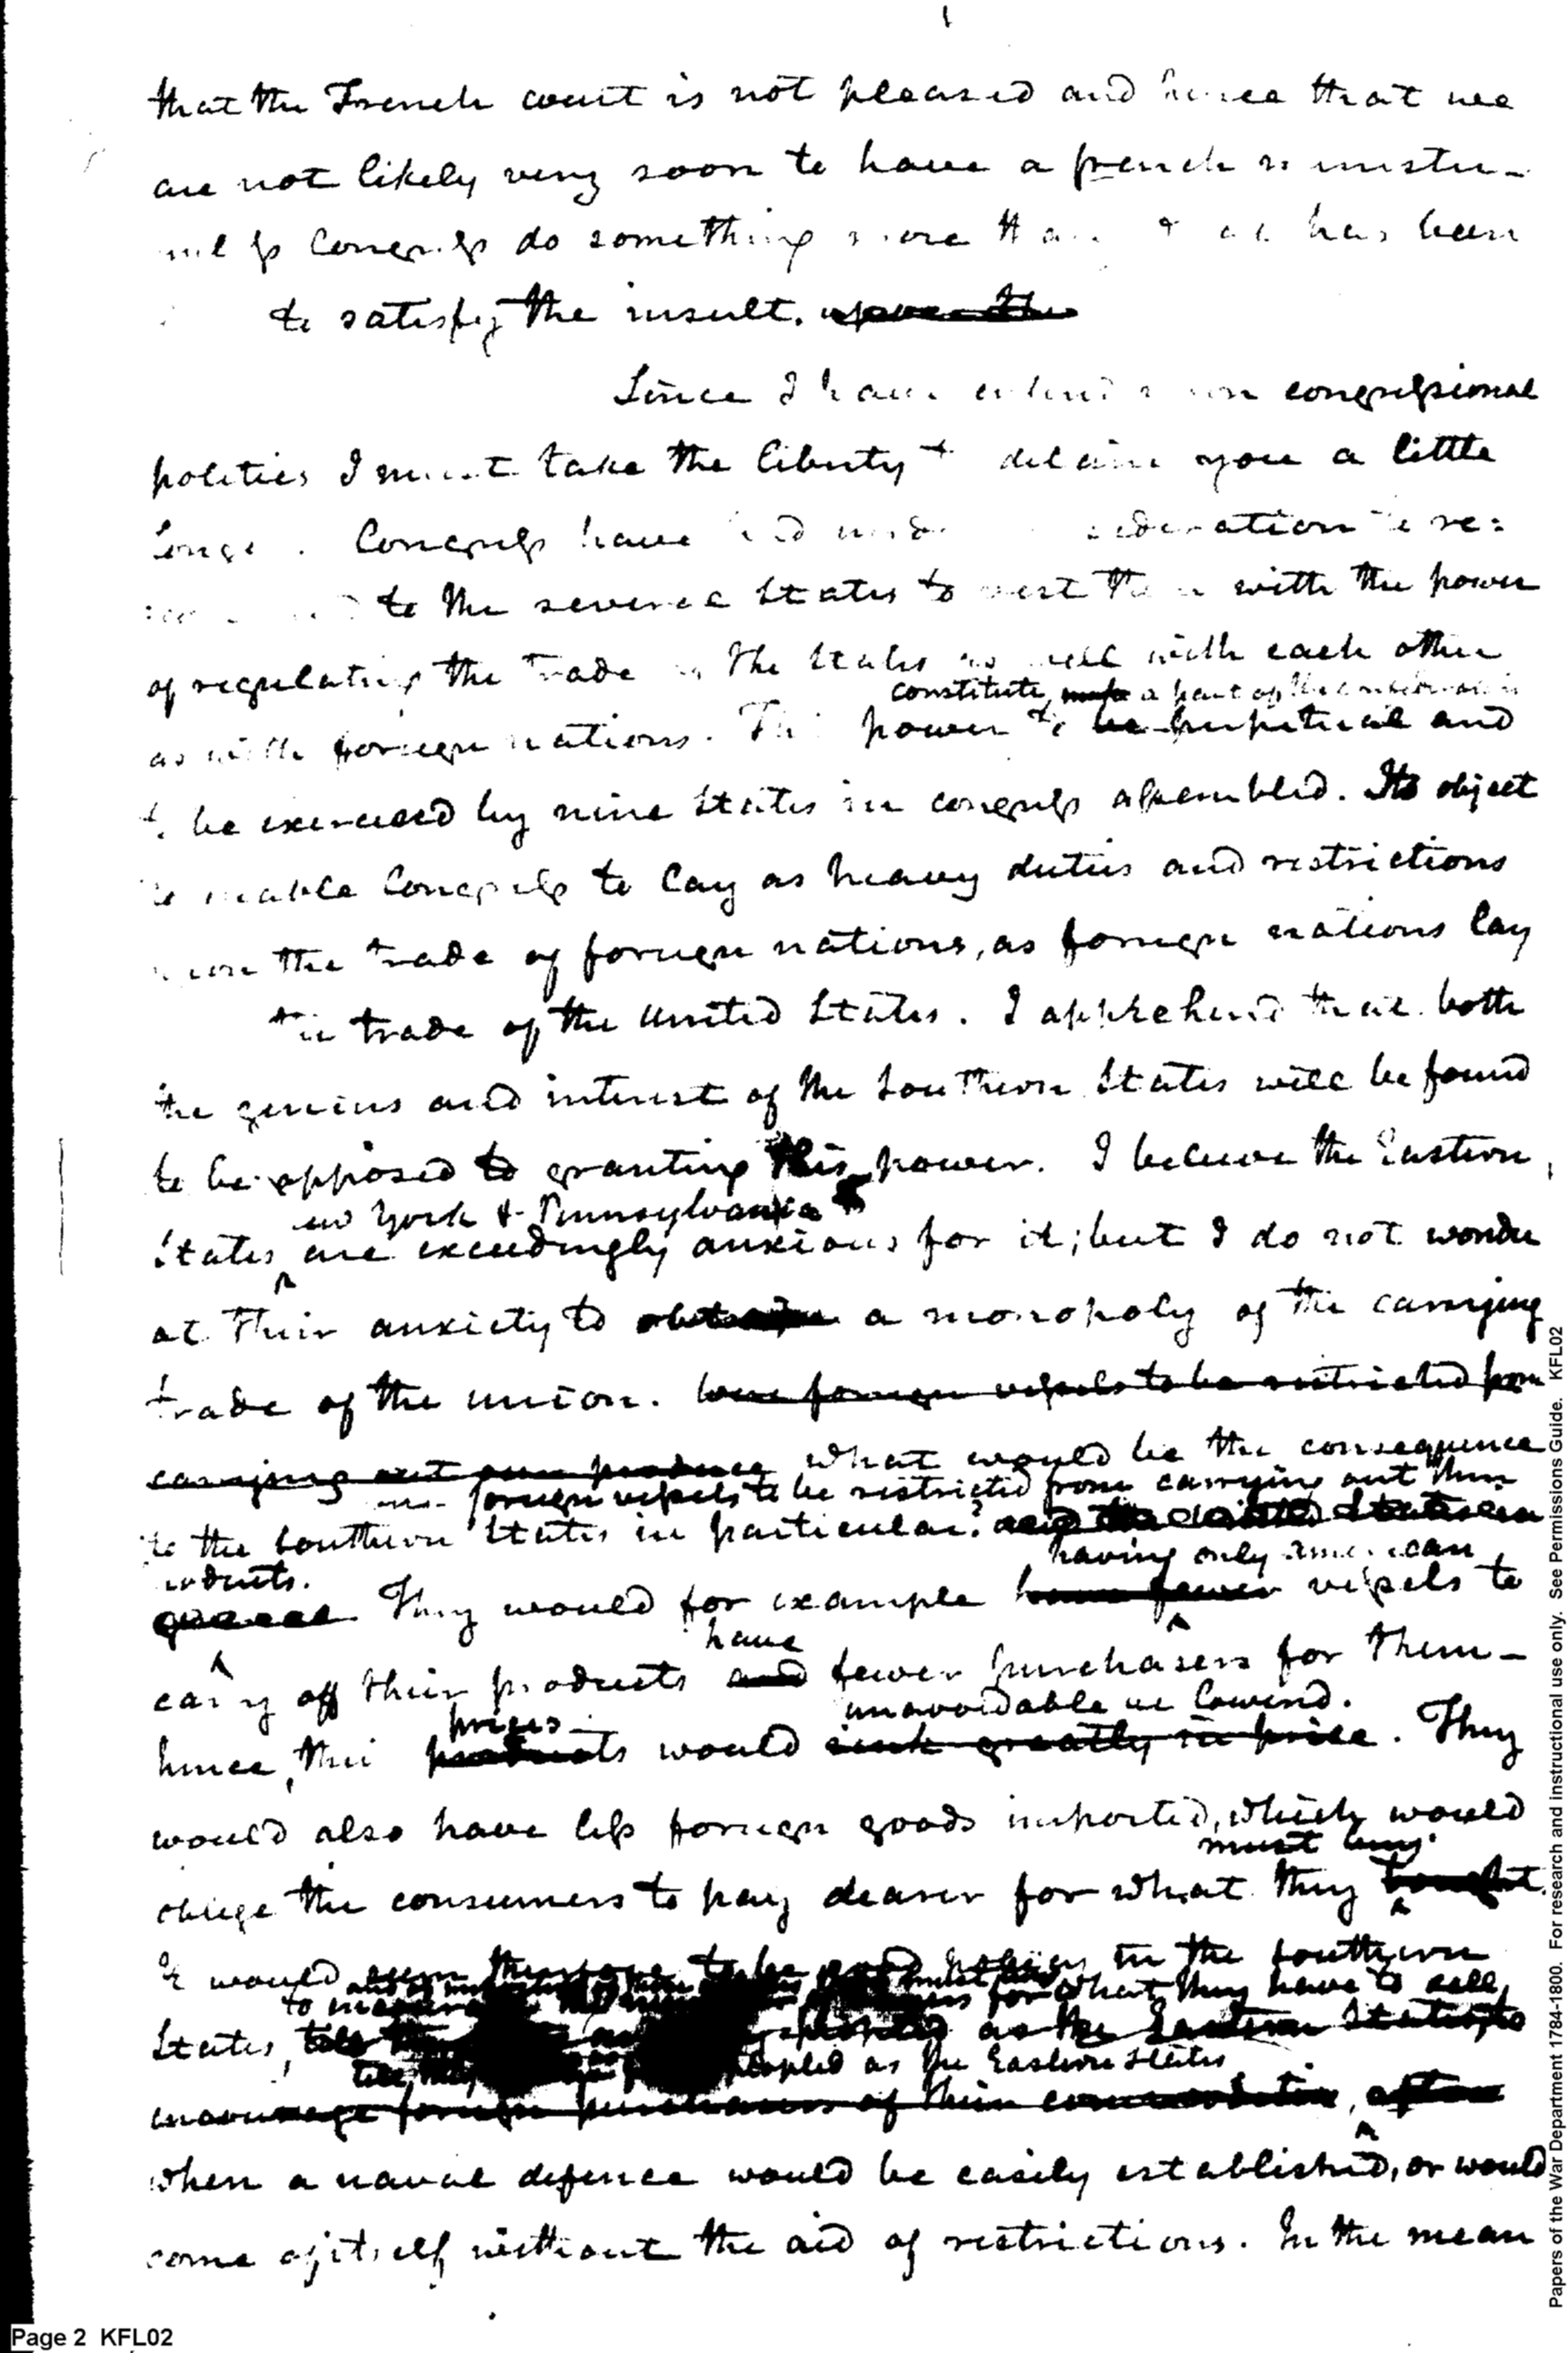 that the French court is not pleased and hence that we
are not likely very soon to have a french minister_
unless Congress do something more than has been
to satisfy the insult. upon the
Since I have entered upon congressional
polities I must take the liberty to detain you a little
longer. Congress have had under to re=
to the several States to vest them with the power
of regulating the trade of the States as well with each other
constitute make a part of the confederation
as with foreign nations. This power to be perpetual and
to be exercised by nine States in congress assembled. Its object
to enable Congress to lay as heavy duties and restrictions
upon the trade of foreign nations, as foreign nations lay
the trade of the United States. I apprehend that both
the genius and interest of the Southern States will be found
to be opposed to granting this power. I believe the Eastern
New York & Pennsylvania
States are exceedingly anxious for it; but I do not wonder
at their anxiety to obtain a monopoly of the carrying
trade of the union. Were foreign vessels to be restricted from
carrying out our produce what would be the consequence
foreign vessels to be restricted from carrying out their
to the Southern States in particular?
products. having only american
They would for example have fewer vessels to
have
carry off their products and fewer purchasers for them_
prices unavoidable be lowered.
hence, their products would sink greatly in price. They
would also have less foreign goods imported, which would
must buy.
oblige the consumers to pay dearer for what they bought
It would seem therefore to be good policy in the southern
to for what they have to sell
States, as the Eastern States, to
till they peopled as the Eastern States
encourage foreign purchasers of their commodities, after
when a naval defence would be easily established, or would
come of itself without the aid of restrictions. In the mean
Papers of the War Department 1784-1800. For research and instructional use only. See Permissions Guide. KFL02
Page 2 KFL02